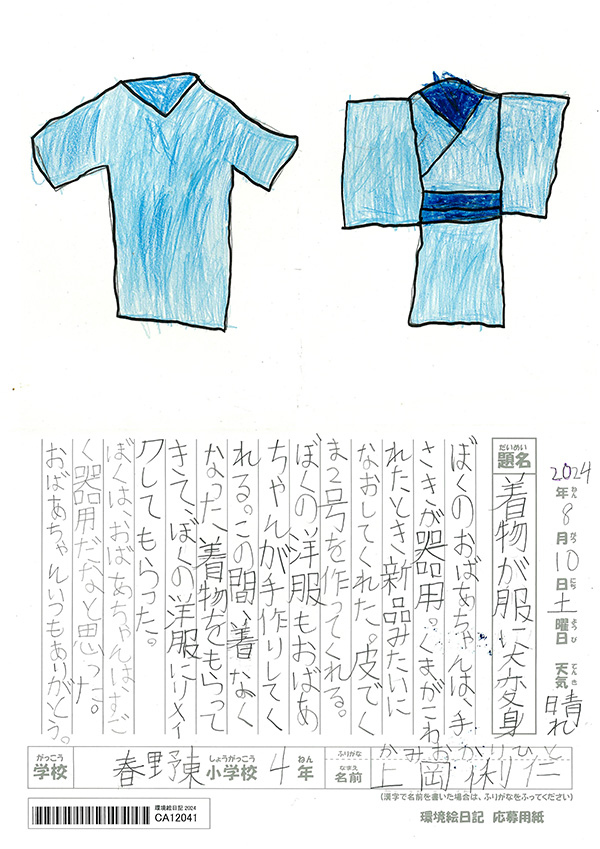 2024年8月10日土曜日 天気 晴れ
ねん がつ にち ようび てんき
だいめい
題名 着物が服に大変身
ぼくのおばあちゃんは、手
さきが器用。くまがこわ
れたとき新品みたいに
なおしてくれた。皮でく
ま2号を作ってくれる。
ぼくの洋服もおばあ
ちゃんが手作りしてく
れる。この間、着なく
なった、着物をもらって
きて、ぼくの洋服にリメイ
クしてもらった。
ぼくは、おばあちゃんはすご
く器用だなと思った。
おばあちゃんいつもありがとう。
がっこう しょうがっこう ねん ふりがな かみおかりひと
学校 春野東小学校 4年 なまえ
名前 上岡俐仁
(漢字で名前を書いた場合は、ふりがなをふってください)
環境絵日記 2024
CA12041
環境絵日記 応募用紙